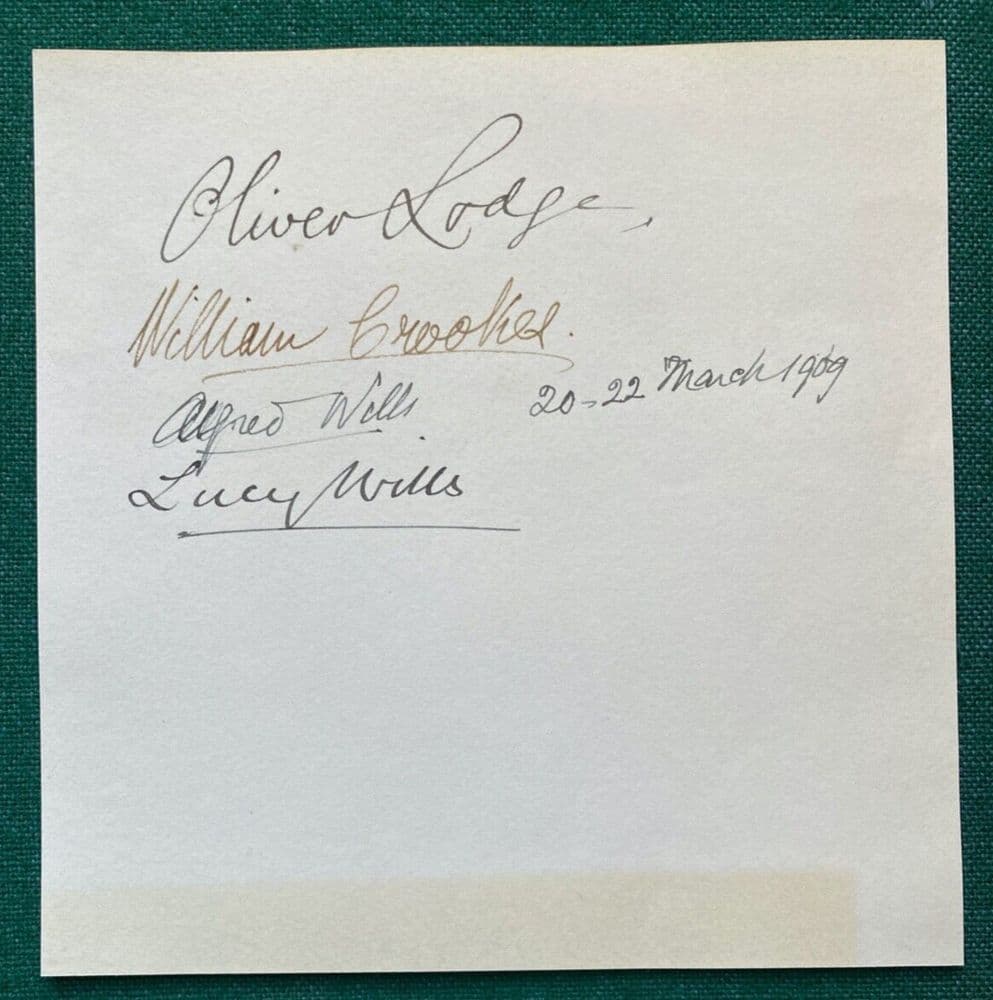 Oliver Lodge,
William Crookes.
Alfred Wills 20-22 March 1909
Lucy Wills